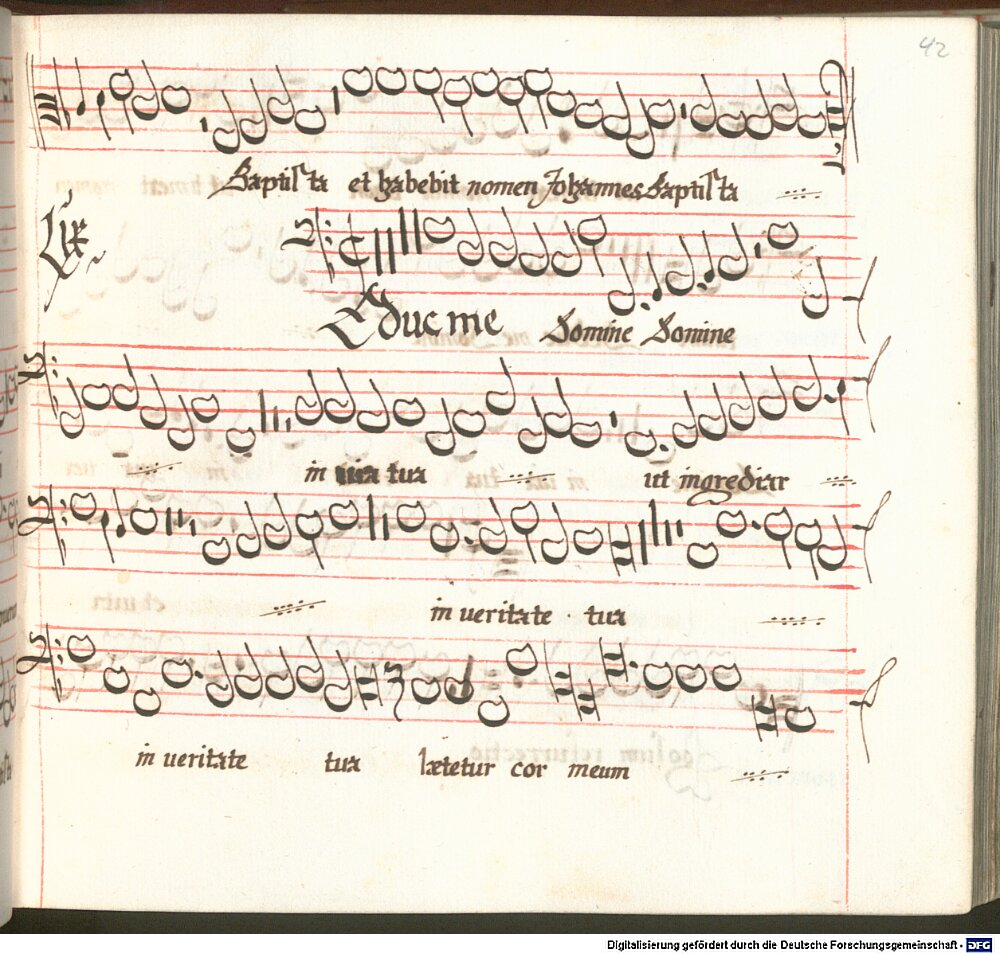 42
Baptista et habebit nomen Johannes Baptista
Duc me Domine Domine
in via tua ut ingrediar
in veritate tua
in veritate tua lætetur cor meum
Digitalisierung gefördert durch die Deutsche Forschungsgemeinschaft - DFG